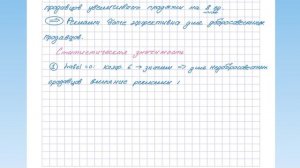 продавцов увеличивают продажи на 8 ед
⇒ Реклама более эффективна для добросовестных
продавцов.
Статистическая значимость
① label=0: коэф. b → значим ⇒ для недобросовестных
продавцов влияние рекламы